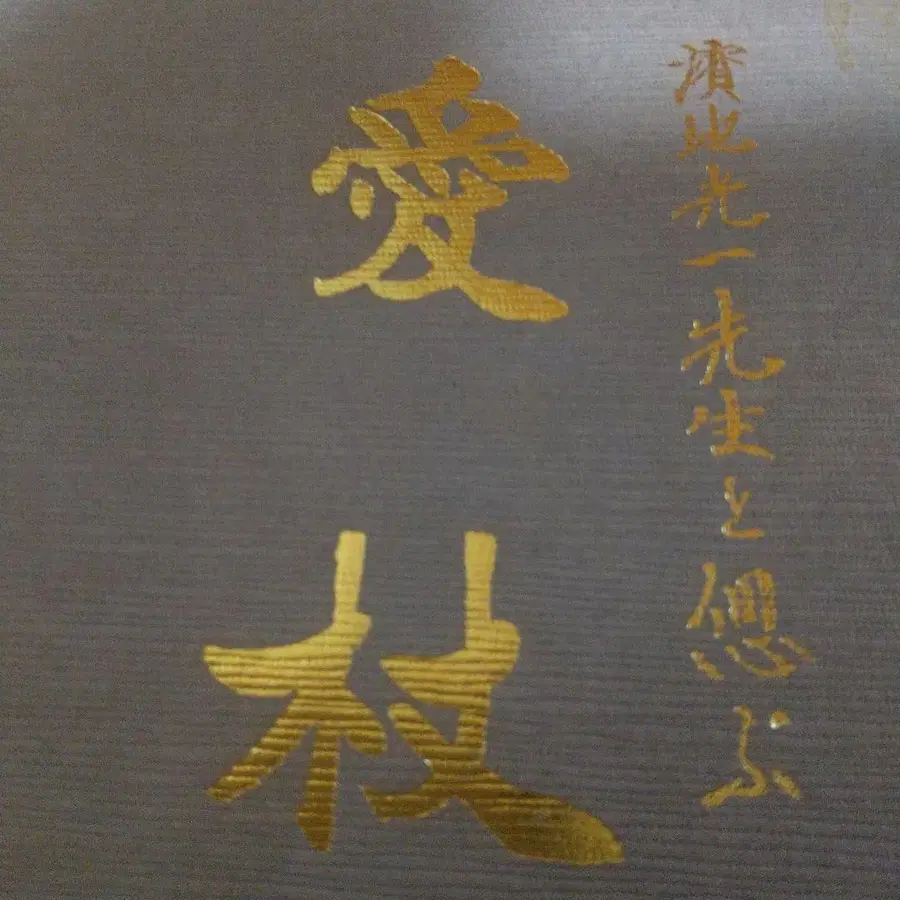 濱地光一先生を偲ぶ
愛杖